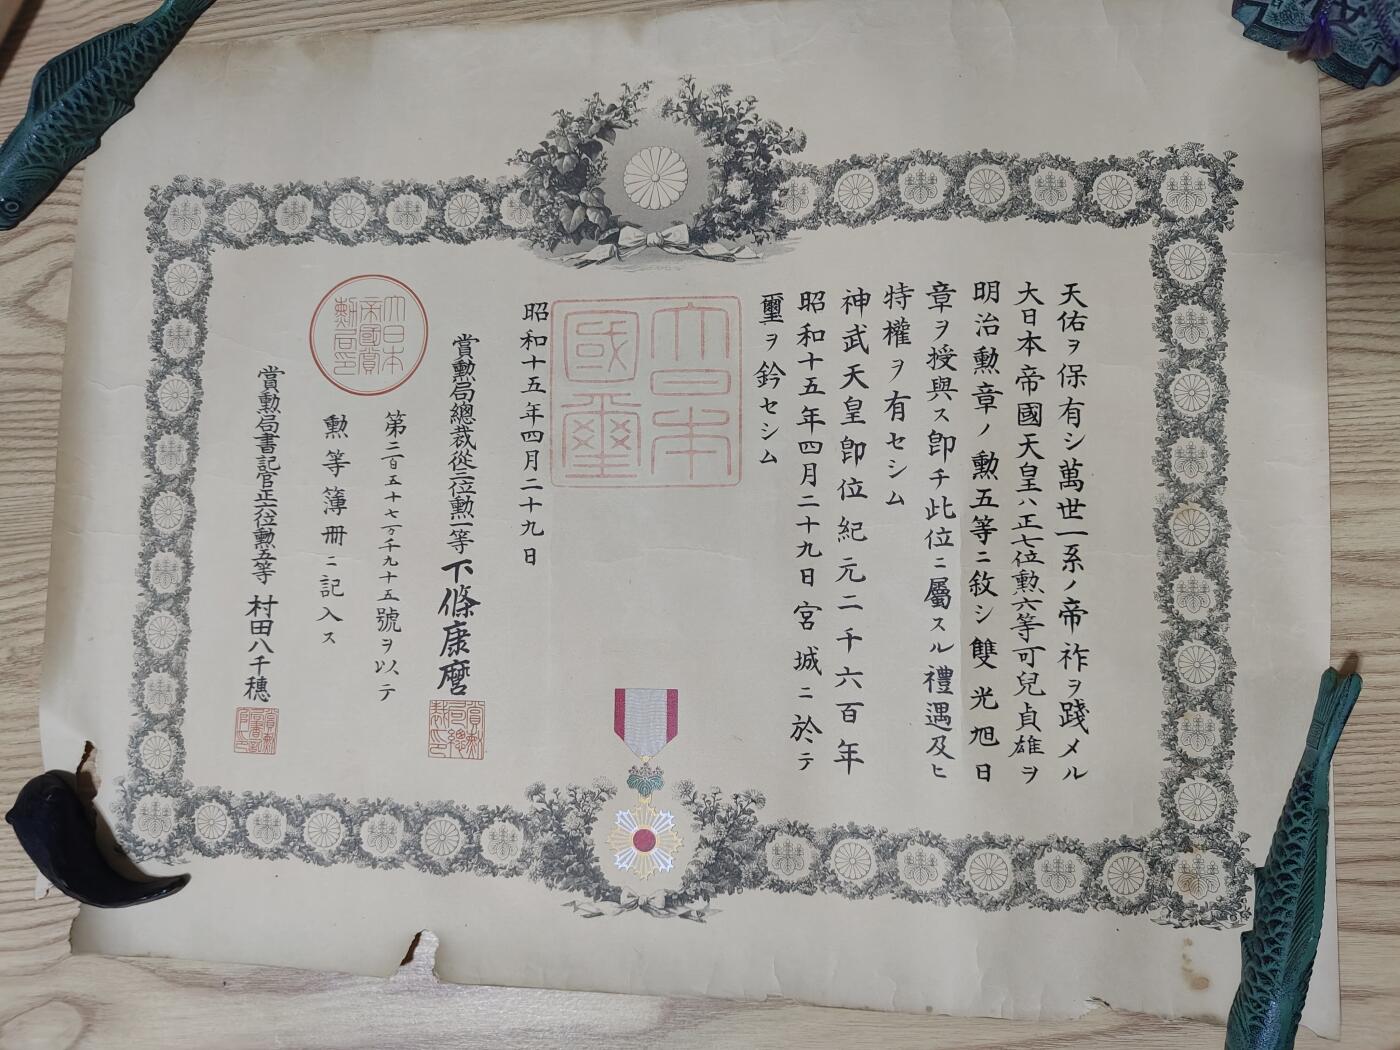 天佑ヲ保有シ萬世一系ノ帝祚ヲ踐メル
大日本帝國天皇ハ正七位勲六等可兒貞雄ヲ
明治勲章ノ勲五等ニ敘シ雙光旭日
章ヲ授與ス卽チ此位ニ屬スル禮遇及ヒ
特權ヲ有セシム
神武天皇卽位紀元二千六百年
昭和十五年四月二十九日宮城ニ於テ
璽ヲ鈐セシム
大日本
國璽
昭和十五年四月二十九日
賞勲局總裁從三位勲一等下條康麿
第二百五十七万千九十五號ヲ以テ
勲等簿册ニ記入ス
大日本
帝國賞
勲局印
賞勲局書記官正六位勲五等村田八千穗